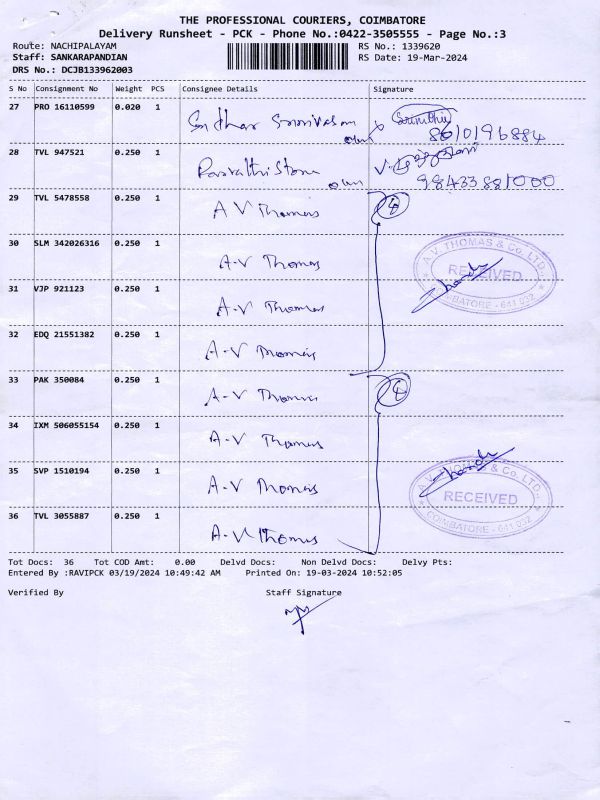 THE PROFESSIONAL COURIERS, COIMBATORE
Delivery Runsheet - PCK - Phone No.:0422-3505555 - Page No.:3
Route: NACHIPALAYAM RS No.: 1339620
Staff: SANKARAPANDIAN RS Date: 19-Mar-2024
DRS No.: DCJB133962003
S No Consignment No Weight PCS Consignee Details Signature
27 PRO 16110599 0.020 1 Sridhar Srinivasan own Srinithi
8610196884
28 TVL 947521 0.250 1 Parvathi Stone own V.
98433881000
29 TVL 5478558 0.250 1 A V Thomas 4
30 SLM 342026316 0.250 1 A-V Thomas
A.V. THOMAS & Co. LTD., RECEIVED COIMBATORE - 641 032
31 VJP 921123 0.250 1 A-V Thomas
32 EDQ 21551382 0.250 1 A-V Thomas
33 PAK 350084 0.250 1 A-V Thomas 4
34 IXM 506055154 0.250 1 A-V Thomas
35 SVP 1510194 0.250 1 A-V Thomas
A.V. THOMAS & Co. LTD., RECEIVED COIMBATORE - 641 032
36 TVL 3055887 0.250 1 A-V Thomas
Tot Docs: 36 Tot COD Amt: 0.00 Delvd Docs: Non Delvd Docs: Delvy Pts:
Entered By :RAVIPCK 03/19/2024 10:49:42 AM Printed On: 19-03-2024 10:52:05
Verified By Staff Signature